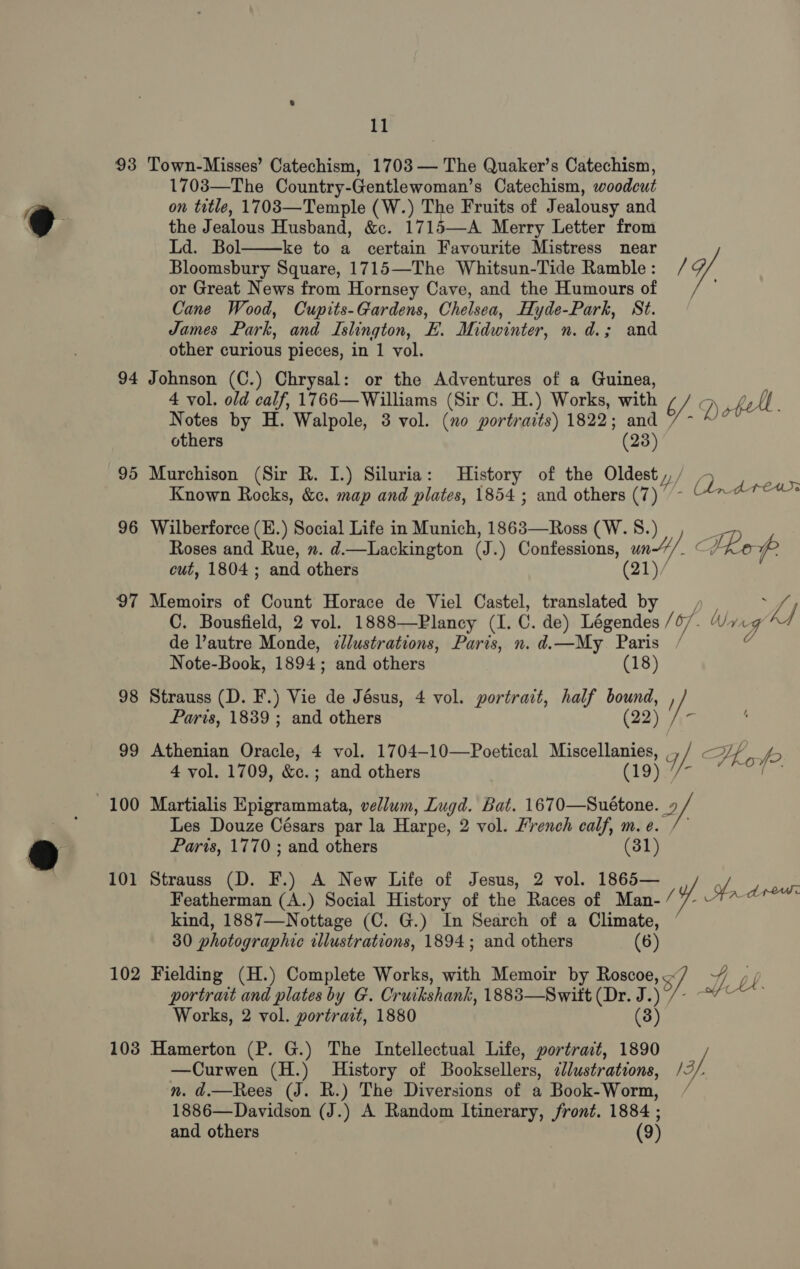 11
93 Town-Misses’ Catechism, 1703—The Quaker’s Catechism,
1703—The Country-Gentlewoman’s Catechism, woodcut
on title, 1703—Temple (W.) The Fruits of Jealousy and
the Jealous Husband, &c. 1715—A Merry Letter from
Ld. Bol——ke to a certain Favourite Mistress near
Bloomsbury Square, 1715—The Whitsun-Tide Ramble:
or Great News from Hornsey Cave, and the Humours of
Cane Wood, Cupits-Gardens, Chelsea, Hyde-Park, St.
James Park, and Islington, E. Midwinter, n. d.; and
other curious pieces, in 1 vol.
94 Johnson (C.) Chrysal: or the Adventures of a Guinea,
4 vol. old calf, 1766—Williams (Sir C. H.) Works, with 6/- Dobell.
Notes by H. Walpole, 3 vol. (no portraits) 1822; and
others (23)
95 Murchison (Sir R. I.) Siluria: History of the Oldest
Known Rocks, &c. map and plates, 1854; and others (7) Andrews
96 Wilberforce (E.) Social Life in Munich, 1863—Ross (W. S.)
Roses and Rue, n. d.—Lackington (J.) Confessions, un-
cut, 1804; and others (21)
97 Memoirs of Count Horace de Viel Castel, translated by
C. Bousfield, 2 vol. 1888—Plancy (I. C. de) Légendes
de l’autre Monde, illustrations, Paris, n. d.—My Paris
Note-Book, 1894; and others (18)
98 Strauss (D. F.) Vie de Jésus, 4 vol. portrait, half bound,
Paris, 1839; and others (22)
99 Athenian Oracle, 4 vol. 1704–10—Poetical Miscellanies,
4 vol. 1709, &c.; and others (19)
100 Martialis Epigrammata, vellum, Lugd. Bat. 1670—Suétone.
Les Douze Césars par la Harpe, 2 vol. French calf, m. e.
Paris, 1770; and others (31)
101 Strauss (D. F.) A New Life of Jesus, 2 vol. 1865—
Featherman (A.) Social History of the Races of Man- Andrews
kind, 1887—Nottage (C. G.) In Search of a Climate,
30 photographic illustrations, 1894; and others (6)
102 Fielding (H.) Complete Works, with Memoir by Roscoe,
portrait and plates by G. Cruikshank, 1883—Swift (Dr. J.)
Works, 2 vol. portrait, 1880 (3)
103 Hamerton (P. G.) The Intellectual Life, portrait, 1890
—Curwen (H.) History of Booksellers, illustrations, 13/-
n. d.—Rees (J. R.) The Diversions of a Book-Worm,
1886—Davidson (J.) A Random Itinerary, front. 1884;
and others (9)